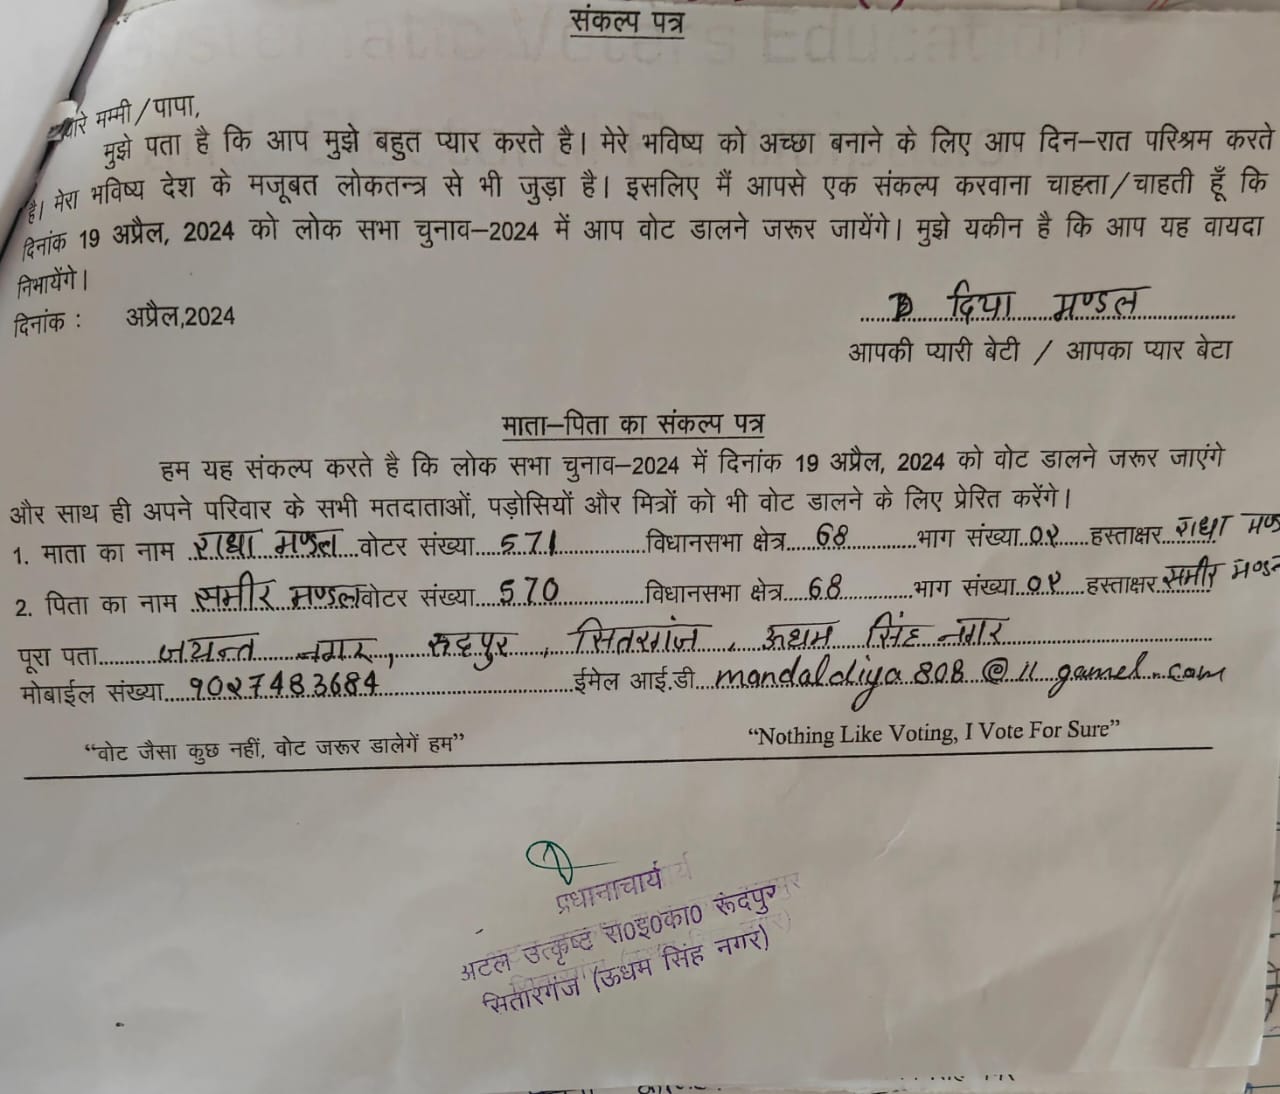 संकल्प पत्र
प्यारे मम्मी/पापा,
मुझे पता है कि आप मुझे बहुत प्यार करते है। मेरे भविष्य को अच्छा बनाने के लिए आप दिन-रात परिश्रम करते
है। मेरा भविष्य देश के मजूबत लोकतन्त्र से भी जुड़ा है। इसलिए मैं आपसे एक संकल्प करवाना चाहता/चाहती हूँ कि
दिनांक 19 अप्रैल, 2024 को लोक सभा चुनाव-2024 में आप वोट डालने जरूर जायेंगे। मुझे यकीन है कि आप यह वायदा
निभायेंगे।
दिनांक : अप्रैल,2024
दिया मण्डल
आपकी प्यारी बेटी / आपका प्यार बेटा
माता-पिता का संकल्प पत्र
हम यह संकल्प करते है कि लोक सभा चुनाव-2024 में दिनांक 19 अप्रैल, 2024 को वोट डालने जरूर जाएंगे
और साथ ही अपने परिवार के सभी मतदाताओं, पड़ोसियों और मित्रों को भी वोट डालने के लिए प्रेरित करेंगे।
1. माता का नाम राधा मण्डल वोटर संख्या 571 विधानसभा क्षेत्र 68 भाग संख्या 09 हस्ताक्षर राधा
2. पिता का नाम समीर मण्डल वोटर संख्या 570 विधानसभा क्षेत्र 68 भाग संख्या 09 हस्ताक्षर समीर
पूरा पता जयन्त नगर, रुद्रपुर, सितारगंज, ऊधम सिंह नगर
मोबाईल संख्या 9027483684 ईमेल आई.डी mandaldiya808@11 gamel.com
“वोट जैसा कुछ नहीं, वोट जरूर डालेगें हम” “Nothing Like Voting, I Vote For Sure”
प्रधानाचार्य
अटल उत्कृष्ट रा०इ०का० रूंदपुर
सितारगंज (ऊधम सिंह नगर)